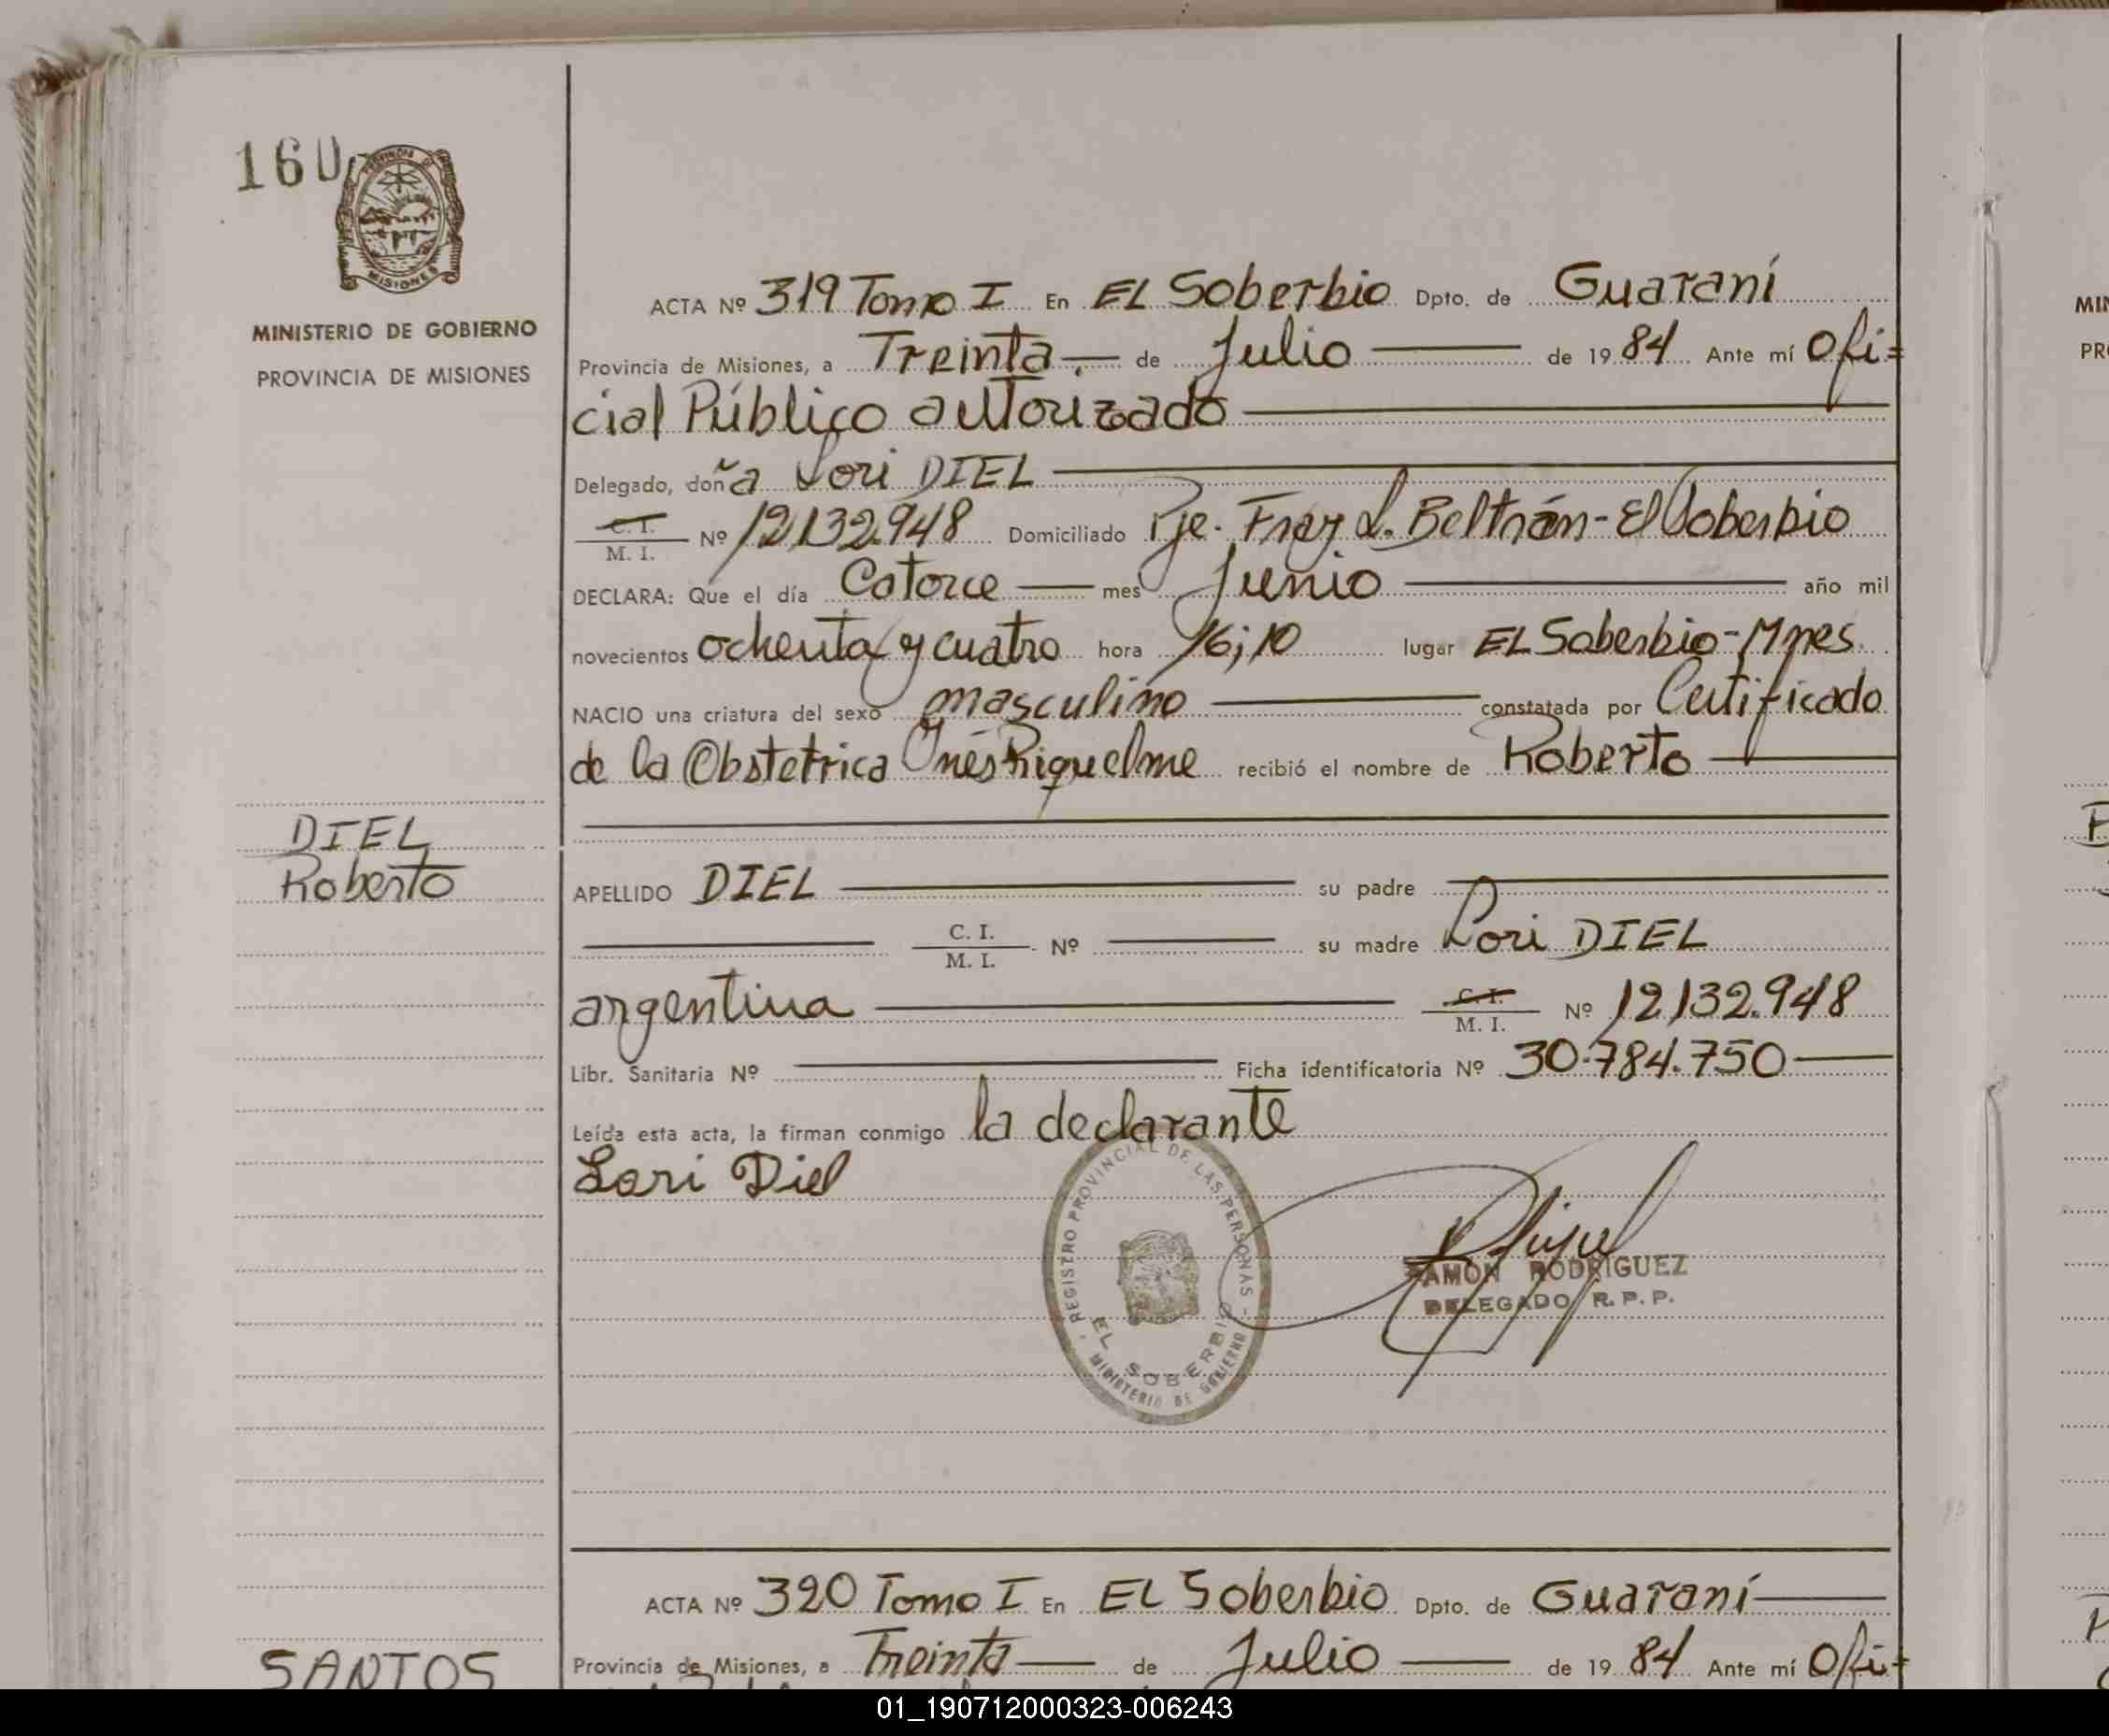 160
PROVINCIA DE
MISIONES
MINISTERIO DE GOBIERNO
PROVINCIA DE MISIONES
ACTA Nº 319 Tomo I En EL Soberbio Dpto. de Guaraní
Provincia de Misiones, a Treinta, de Julio de 1984 Ante mí Ofi=
cial Público autorizado
Delegado, doña Lori DIEL
C. I.
M. I. Nº 12.132.948 Domiciliado Pje. Fray L. Beltrán - El Soberbio
DECLARA: Que el día Catorce mes Junio año mil
novecientos ochenta y cuatro hora 16;10 lugar EL Soberbio - Mnes.
NACIO una criatura del sexo masculino constatada por Certificado
de la Obstetrica Inés Riquelme recibió el nombre de Roberto
DIEL
Roberto
APELLIDO DIEL su padre
C. I.
M. I. Nº su madre Lori DIEL
argentina C. I.
M. I. Nº 12.132.948
Libr. Sanitaria Nº Ficha identificatoria Nº 30.784.750
Leída esta acta, la firman conmigo la declarante
Lori Diel
REGISTRO PROVINCIAL DE LAS PERSONAS -
EL SOBERBIO
MINISTERIO DE GOBIERNO
RAMON RODRIGUEZ
DELEGADO R. P. P.
ACTA Nº 320 Tomo I En EL Soberbio Dpto. de Guaraní
Provincia de Misiones, a Treinta de Julio de 1984 Ante mí Ofi-
SANTOS
01_190712000323-006243